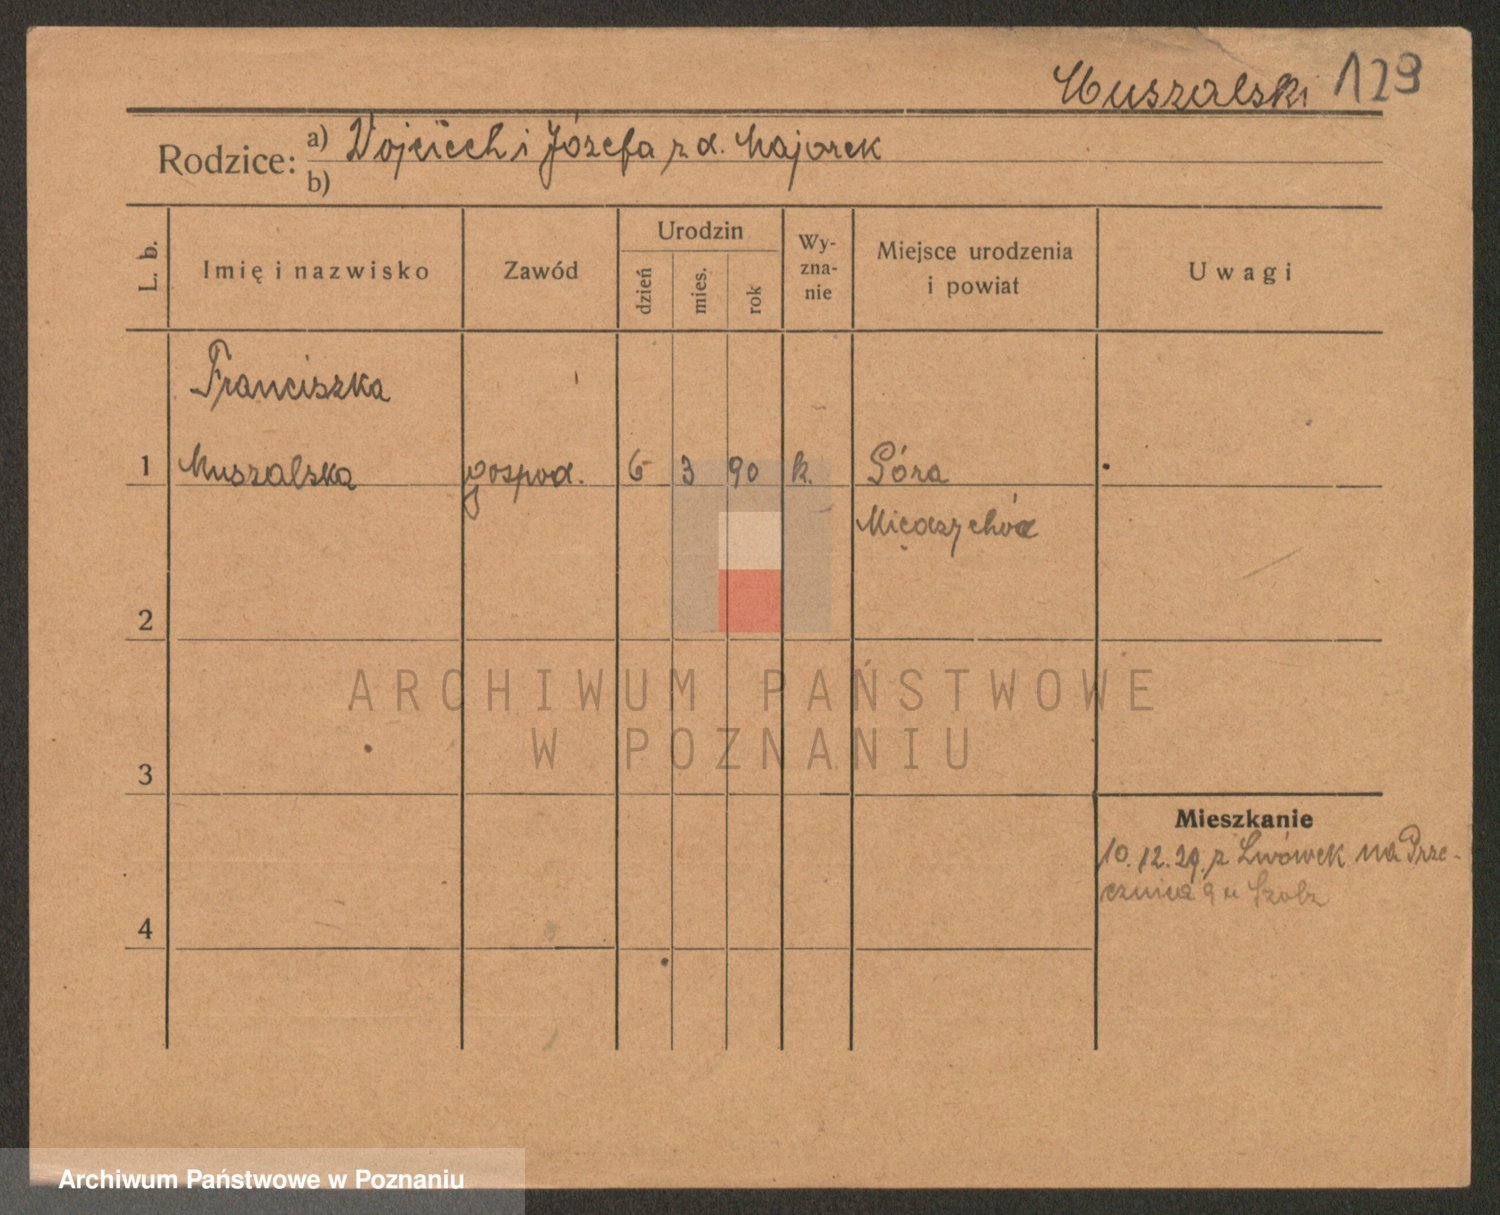 Muszalski 129
Rodzice: a) Wojciech i Józefa z d. Majorek
b)
L. b.
Imię i nazwisko
Zawód
Urodzin
dzień
mies.
rok
Wy-
zna-
nie
Miejsce urodzenia
i powiat
Uwagi
Franciszka
1 Muszalska gospod. 6 3 90 k. Góra
Międzychód
2
3
ARCHIWUM PAŃSTWOWE
W POZNANIU
Mieszkanie
10.12.29. z Lwówek na Prze-
cznica 9 u Szolz
4
Archiwum Państwowe w Poznaniu